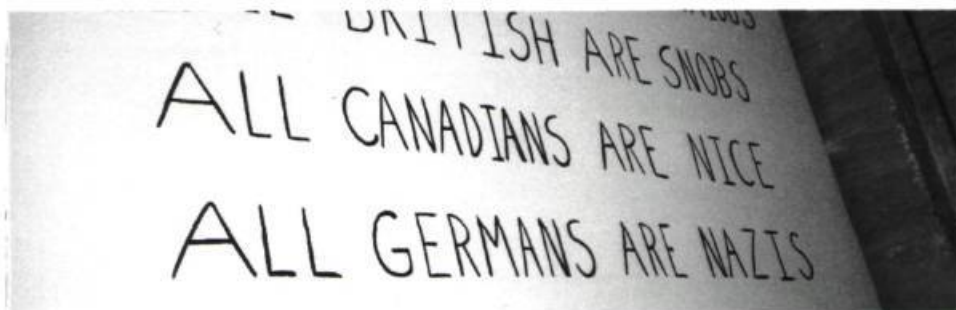 BRITISH ARE SNOBS
ALL CANADIANS ARE NICE
ALL GERMANS ARE NAZIS